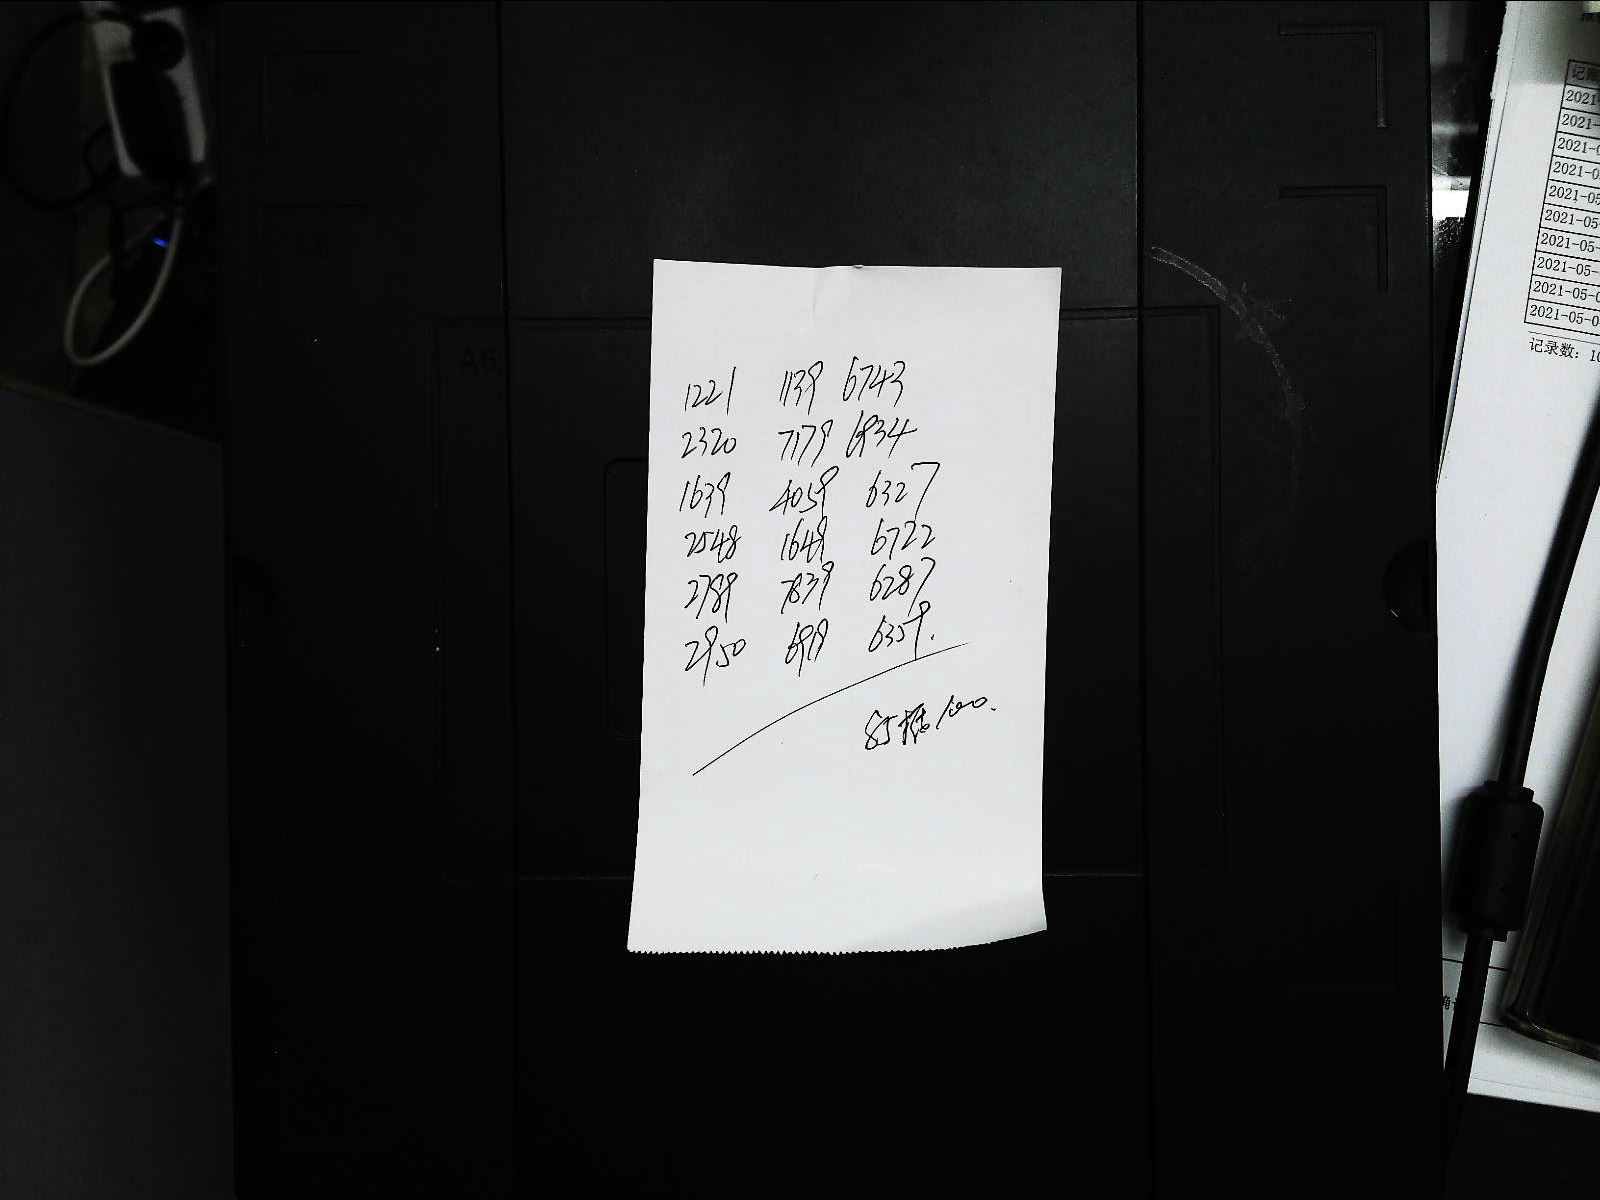 1221 1139 6743
2320 7179 6934
1639 4059 6327
2548 1649 6722
2789 7839 6287
2950 6919 6359.
85 100.
A6
A5
2021-
2021-
2021-0
2021-0
2021-05
2021-05
2021-05-
2021-05-
2021-05-0
2021-05-0
记录数: 10